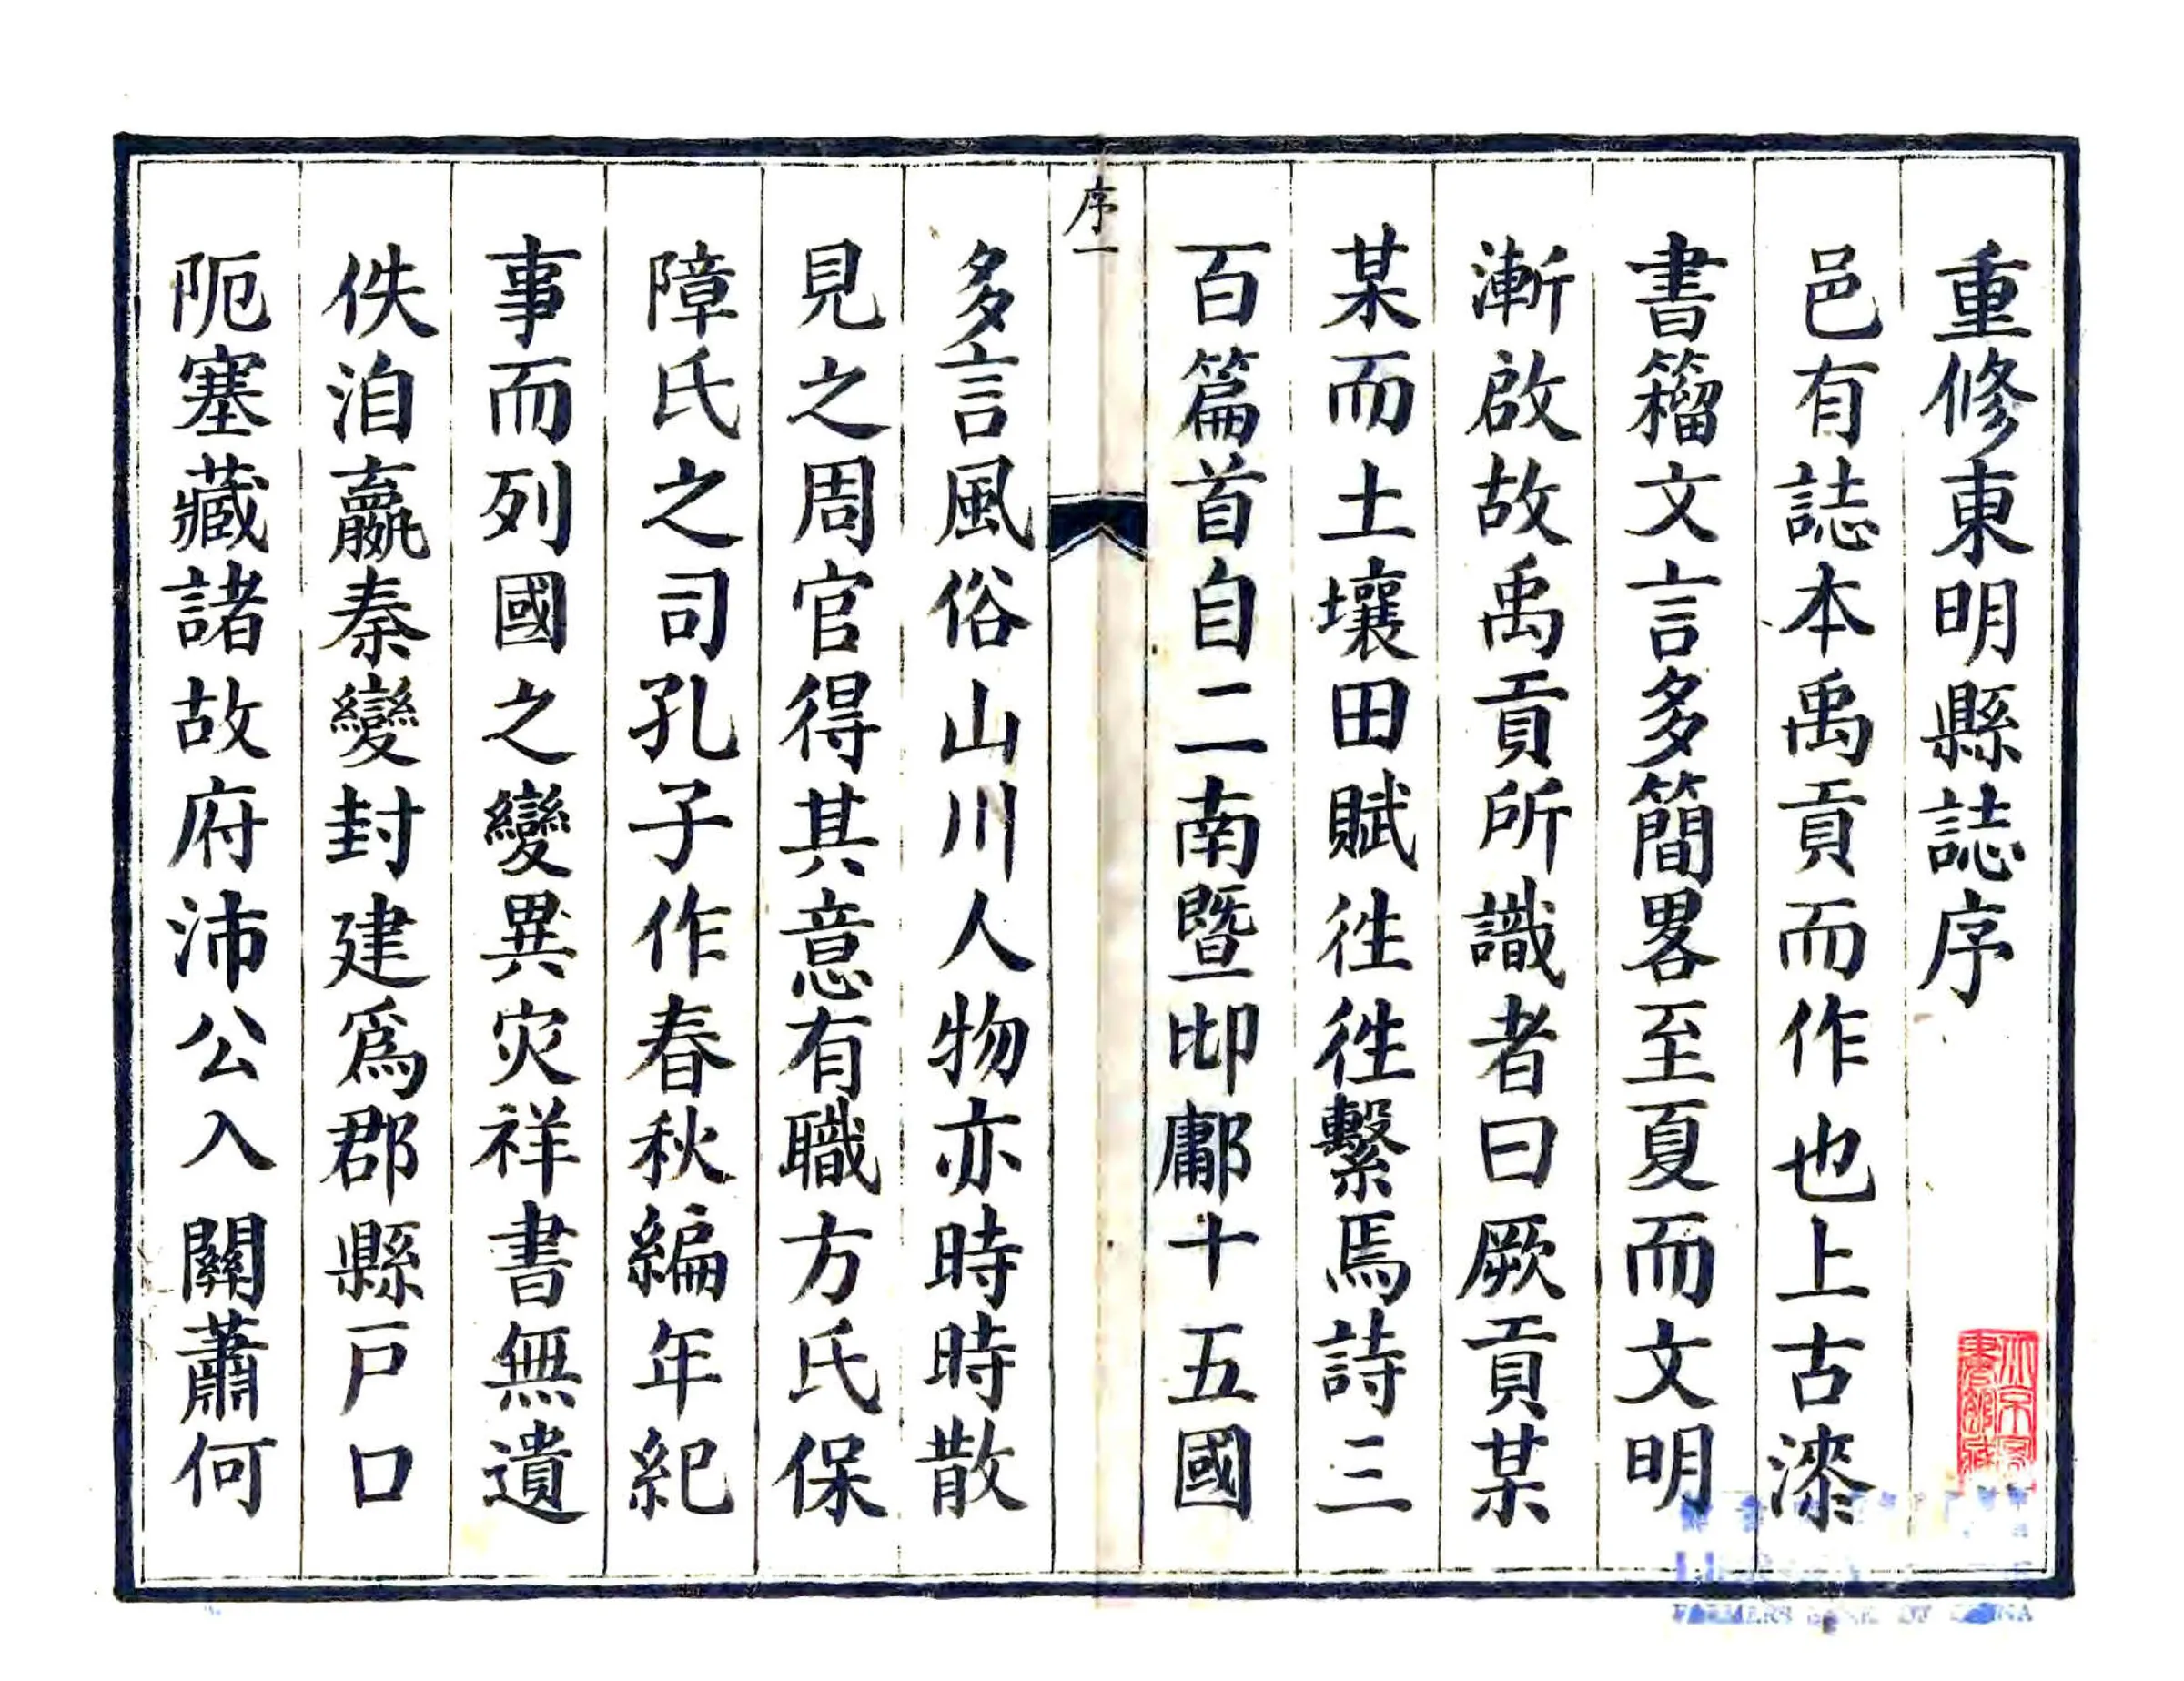 重修東明縣誌序
邑有誌本禹貢而作也上古漆
書籀文言多簡畧至夏而文明
漸啟故禹貢所識者曰厥貢某
某而土壤田賦徃徃繫焉詩三
百篇首自二南暨邶鄘十五國
序一
多言風俗山川人物亦時時散
見之周官得其意有職方氏保
障氏之司孔子作春秋編年紀
事而列國之變異灾祥書無遺
佚洎嬴秦變封建爲郡縣戶口
阨塞藏諸故府沛公入關蕭何
FARMERS BANK OF CHINA